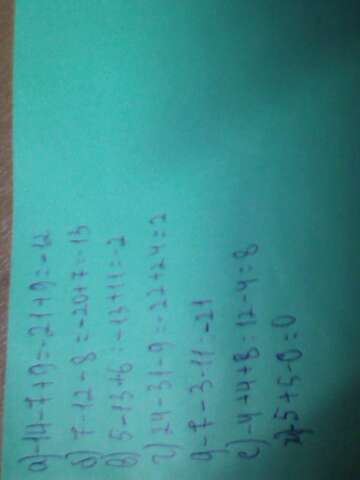 а) -14-7+9=-21+9=-12
б) 7-12-8=-20+7=-13
в) 5-13+6=-13+11=-2
г) 24-31-9=-22+24=2
9-7-3-11=-21
е) -4+4+8=12-4=8
ж) -5+5-0=0